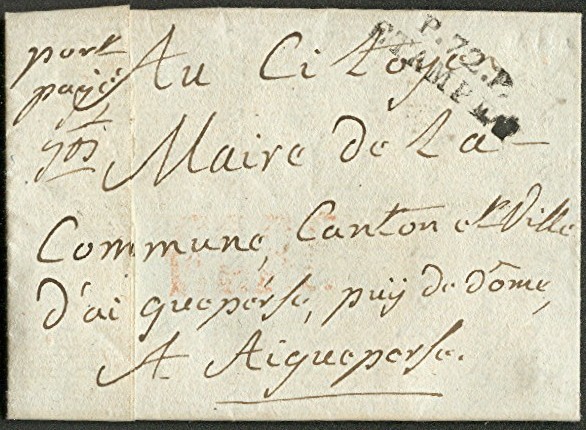 port
payé
P.72.P.
ETAMPES
Au Citoyen
Maire de La
Commune, Canton et Ville
d'aigueperse, puij de dôme,
A Aigueperse.